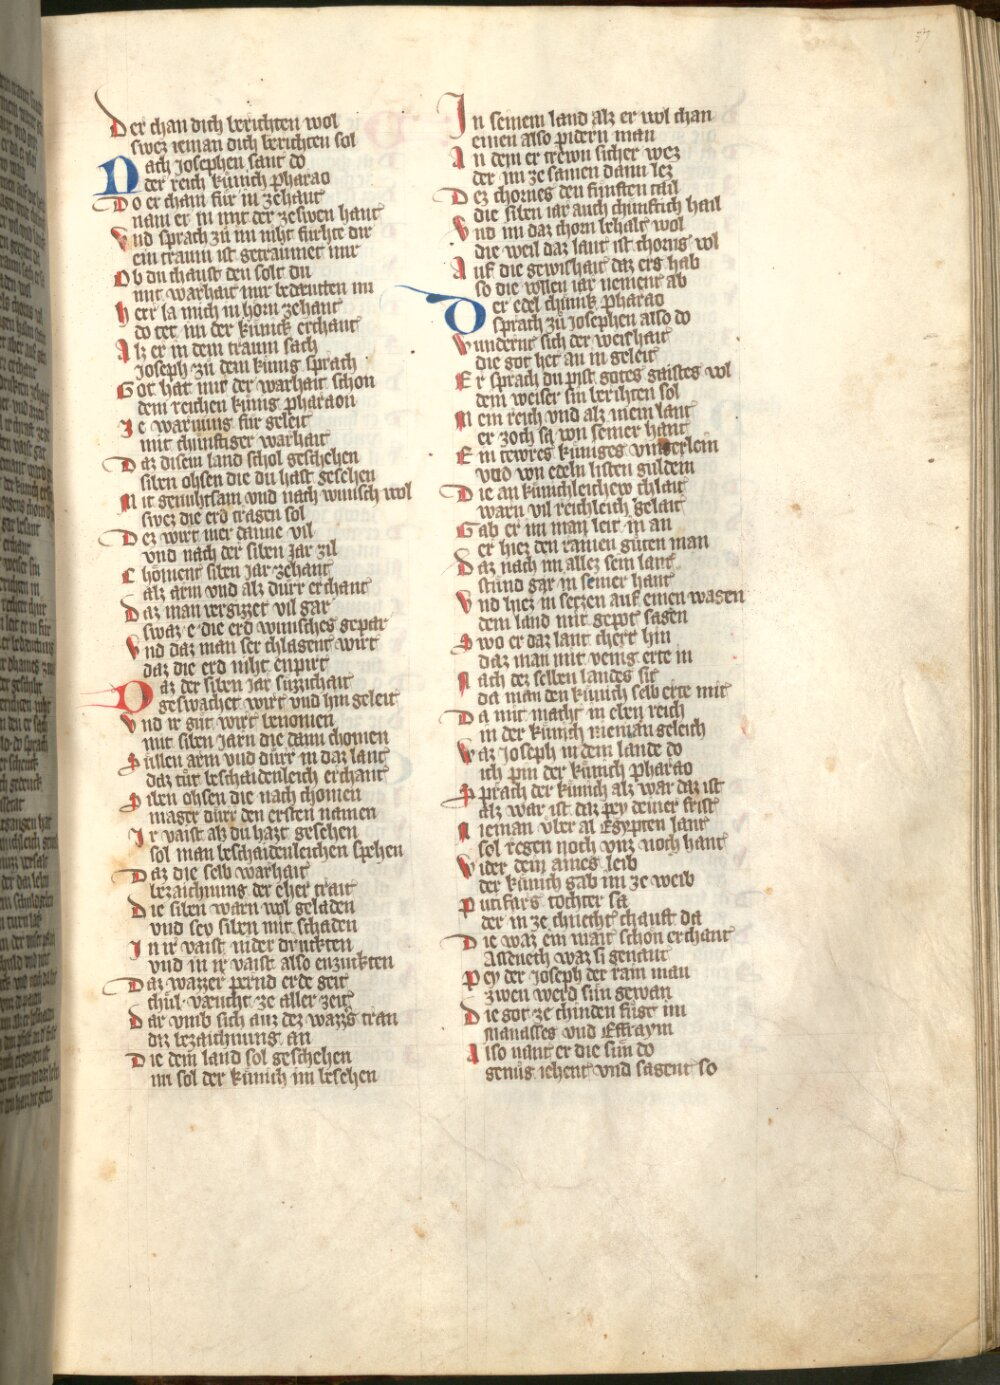 57
Der chan dich berichten wol
swez ieman dich berichten sol
Nach josephen sant do
der reich künich pharao
Do er cham für in zehant
nam er in mit der zeswen hant
Vnd sprach zü im niht fürhte dir
ein traum ist getraumet mir
Ob du chanst den solt du
mir warhait mir bedeutten nu
herr la mich in hörn zehant
do tet im der künick erchant
Alz er in dem traum sach
Joseph zü dem künig sprach
Got hat mir der warhait schon
dem reichen künig pharaon
Je warnung für geleit
mit chünftiger warhait
Daz disem land schol geschehen
siben ohsen die du hast gesehen
Mit genuhtsam vnd nach wunsch wol
swez die erd tragen sol
Dez wirt mer danne vil
vnd nach der siben jar zil
Chöment siben jar zehant
alz arm vnd alz dürr erchant
Daz man vergizzet vil gar
swaz e die erd wunsches gepar
Vnd daz man ser chlagent wirt
daz die erd niht enpirt
Daz der siben jar süzzichait
geswachet wirt vnd hin geleit
Vnd ir güt wirt benomen
mit siben jarn die dann chomen
Süllen arm vnd dürr in daz lant
daz tüt beschaidenleich erchant
Siben ohsen die nach chomen
mager dürr den ersten namen
Jr vaist alz du hast gesehen
sol man beschaidenleichen spehen
Daz die selb warhait
bezaichnung der eher trait
Die siben warn wol geladen
vnd sev siben mit schaden
Jn ir vaist nider druckten
vnd in ir vaist also enzuckten
Daz wazzer pernd erde geit
chül väucht ze aller zeit
Dar vmb sich auz dez wazzers tran
diz bezaichnung an
Die dem land sol geschehen
nu sol der künich im besehen
Jn seinem land alz er wol chan
einen also pidern man
An dem er trewn sicher wez
der im ze samen dann lez
Dez chornes den fünften tail
die siben iar auch chünftich hail
Vnd im daz chorn behalt wol
die weil daz lant ist chorns vol
Auf die gewishait daz ers hab
so die vollen iar nement ab
Der edel chünik pharao
sprach zü Josephen also do
Wundernt sich der weishait
die got het an in geleit
Er sprach du pist gotes gaistes vol
dem weiser sin berichten sol
Mein reich vnd alz mein lant
er zoch sa von seiner hant
Ein tewres küniges vingerlein
von edeln listen guldein
Die an künichleichew chlait
warn vil reichleich gelait
Gab er im man leit in an
er hiez den ramen güten man
Daz nach im allez sein lant
stünd gar in seiner hant
Vnd hiez in setzen auf einen wagen
dem land mit gepot sagen
Swo er daz lant chert hin
daz man mit venig erte in
Nach der selben landes sit
da man den künich selb erte mit
Da mit macht in eben reich
in der künich nieman geleich
Waz Joseph in dem lande do
ich pin der künich pharao
Sprach der künich alz war daz ist
Alz war ist daz pey deiner frist
Nieman vber al Egypten lant
sol regen noch vuz noch hant
Wider dein aines leib
der künich gab im ze weib
Putifars tochter sa
der in ze chnecht chauft da
Die waz ein mait schön erchant
Asseneth waz si genant
Pey der Joseph der rain man
zwen werd sün gewan
Die got ze chinden fügt im
Manasses vnd Effraym
Also nant er die sün do
genüg iehent vnd sagent so